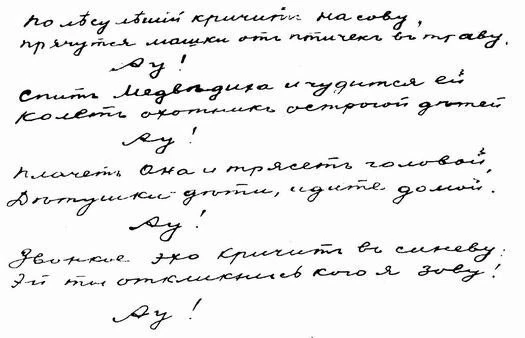 По лѣсу лѣшій кричитъ на сову,
Прячутся мошки отъ птичекъ въ траву.
Ау!
Спитъ медвѣдиха и чудится ей
Колетъ охотникъ острогой дѣтей
Ау!
Плачетъ она и трясетъ головой,
Дѣтушки дѣти, идите домой.
Ау!
Звонкое эхо кричитъ въ синеву:
Эй ты откликнись кого я зову!
Ау!